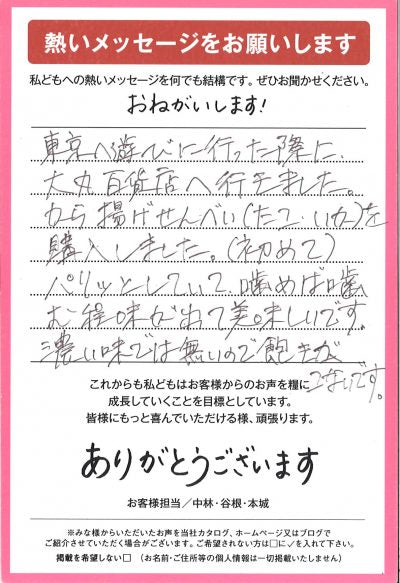 熱いメッセージをお願いします
私どもへの熱いメッセージを何でも結構です。ぜひお聞かせください。
おねがいします!
東京へ遊びに行った際に、
大丸百貨店へ行きました。
から揚げせんべい(たこ・いか)を
購入しました。(初めて)
パリッとしていて、噛めば噛
む程味が出て美味しいです。
濃い味では無いので飽きが
こないです。
これからも私どもはお客様からのお声を糧に
成長していくことを目標としています。
皆様にもっと喜んでいただける様、頑張ります。
ありがとうございます
お客様担当/中林・谷根・本城
※みな様からいただいたお声を当社カタログ、ホームページ又はブログで
ご紹介させていただく場合がございます。ご希望されない方は□に✓を入れて下さい。
掲載を希望しない□ (お名前・ご住所等の個人情報は一切掲載いたしません)